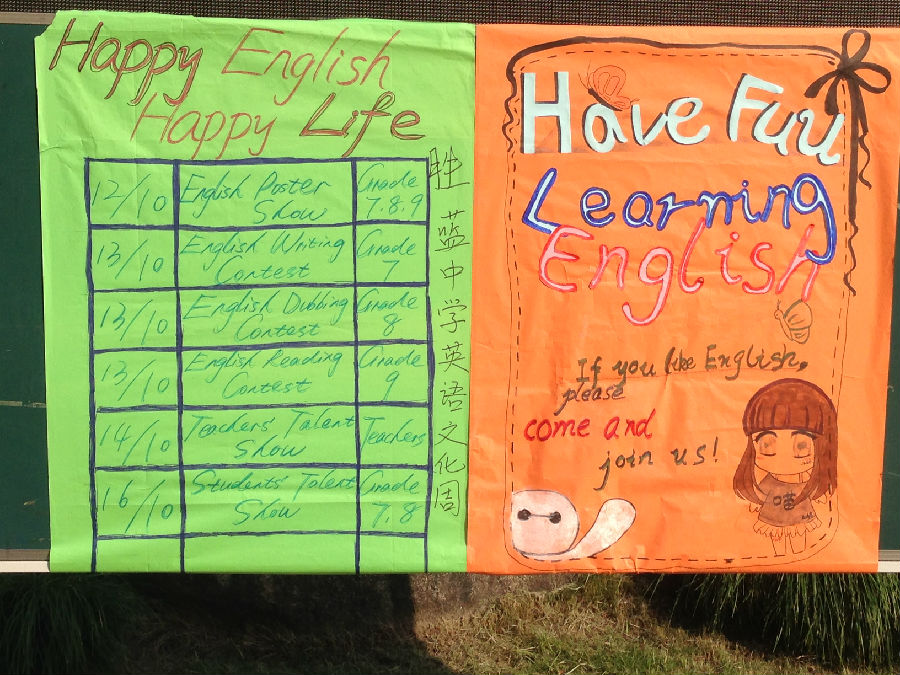 Happy English
Happy Life
12/10 English Poster Show Grade 7.8.9
13/10 English Writing Contest Grade 7
13/10 English Dubbing Contest Grade 8
13/10 English Reading Contest Grade 9
14/10 Teachers' Talent Show Teachers
16/10 Students' Talent Show Grade 7.8
胜蓝中学英语文化周
Have Fuu
Learning
English
If you like English,
please
come and
join us!
喵